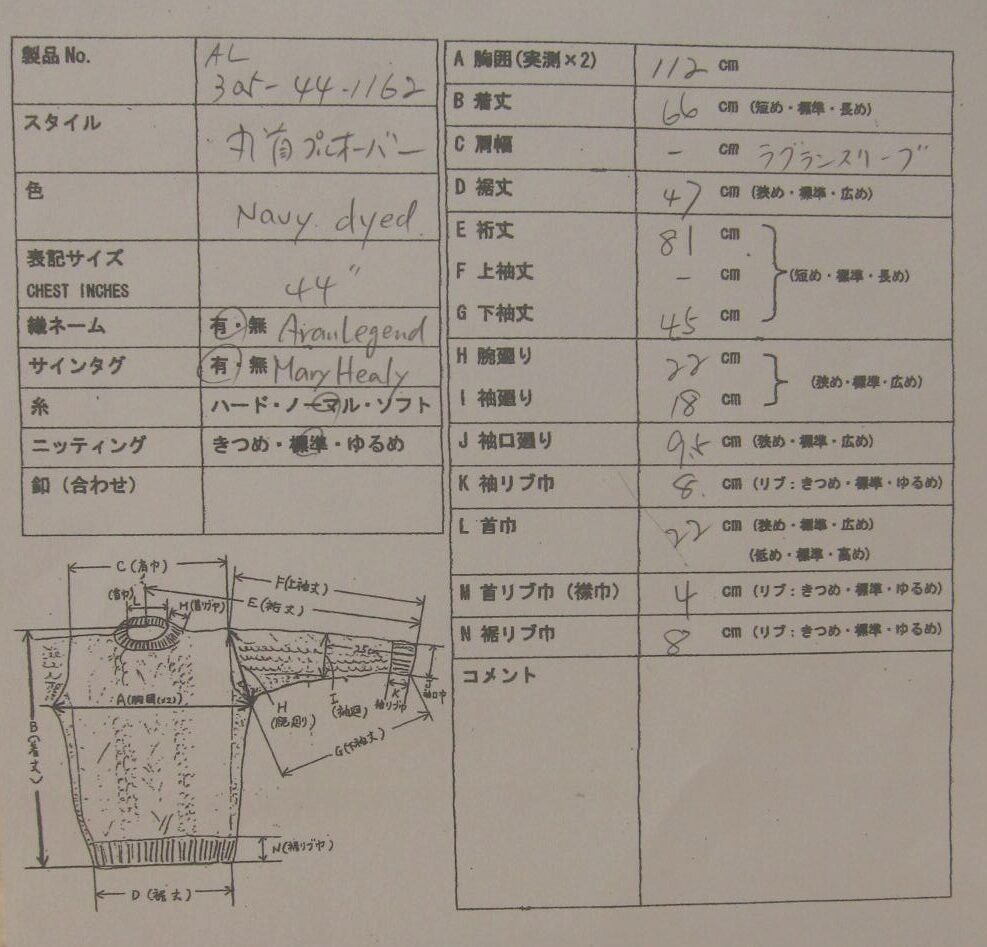 製品No.
AL
305-44-1162
スタイル
丸首プルオーバー
色
Navy dyed.
表記サイズ
CHEST INCHES
44"
織ネーム
有・無 Aran Legend
サインタグ
有・無 Mary Healy
糸
ハード・ノーマル・ソフト
ニッティング
きつめ・標準・ゆるめ
釦（合わせ）
A 胸囲(実測×2)
112 cm
B 着丈
66 cm (短め・標準・長め)
C 肩幅
- cm ラグランスリーブ
D 裾丈
47 cm (狭め・標準・広め)
E 裄丈
81 cm
F 上袖丈
- cm (短め・標準・長め)
G 下袖丈
45 cm
H 腕廻り
22 cm
(狭め・標準・広め)
I 袖廻り
18 cm
J 袖口廻り
9.5 cm (狭め・標準・広め)
K 袖リブ巾
8. cm (リブ：きつめ・標準・ゆるめ)
L 首巾
22 cm (狭め・標準・広め)
(低め・標準・高め)
M 首リブ巾（襟巾）
4 cm (リブ：きつめ・標準・ゆるめ)
N 裾リブ巾
8 cm (リブ：きつめ・標準・ゆるめ)
コメント
C (肩巾)
F(上袖丈)
(首巾)
L
M(首リブ巾)
E(裄丈)
25cm
A(胸囲(×2))
B(着丈)
H
(腕廻り)
I
(袖廻)
K
袖リブ巾
J
袖口巾
G(下袖丈)
N(裾リブ巾)
D (裾丈)